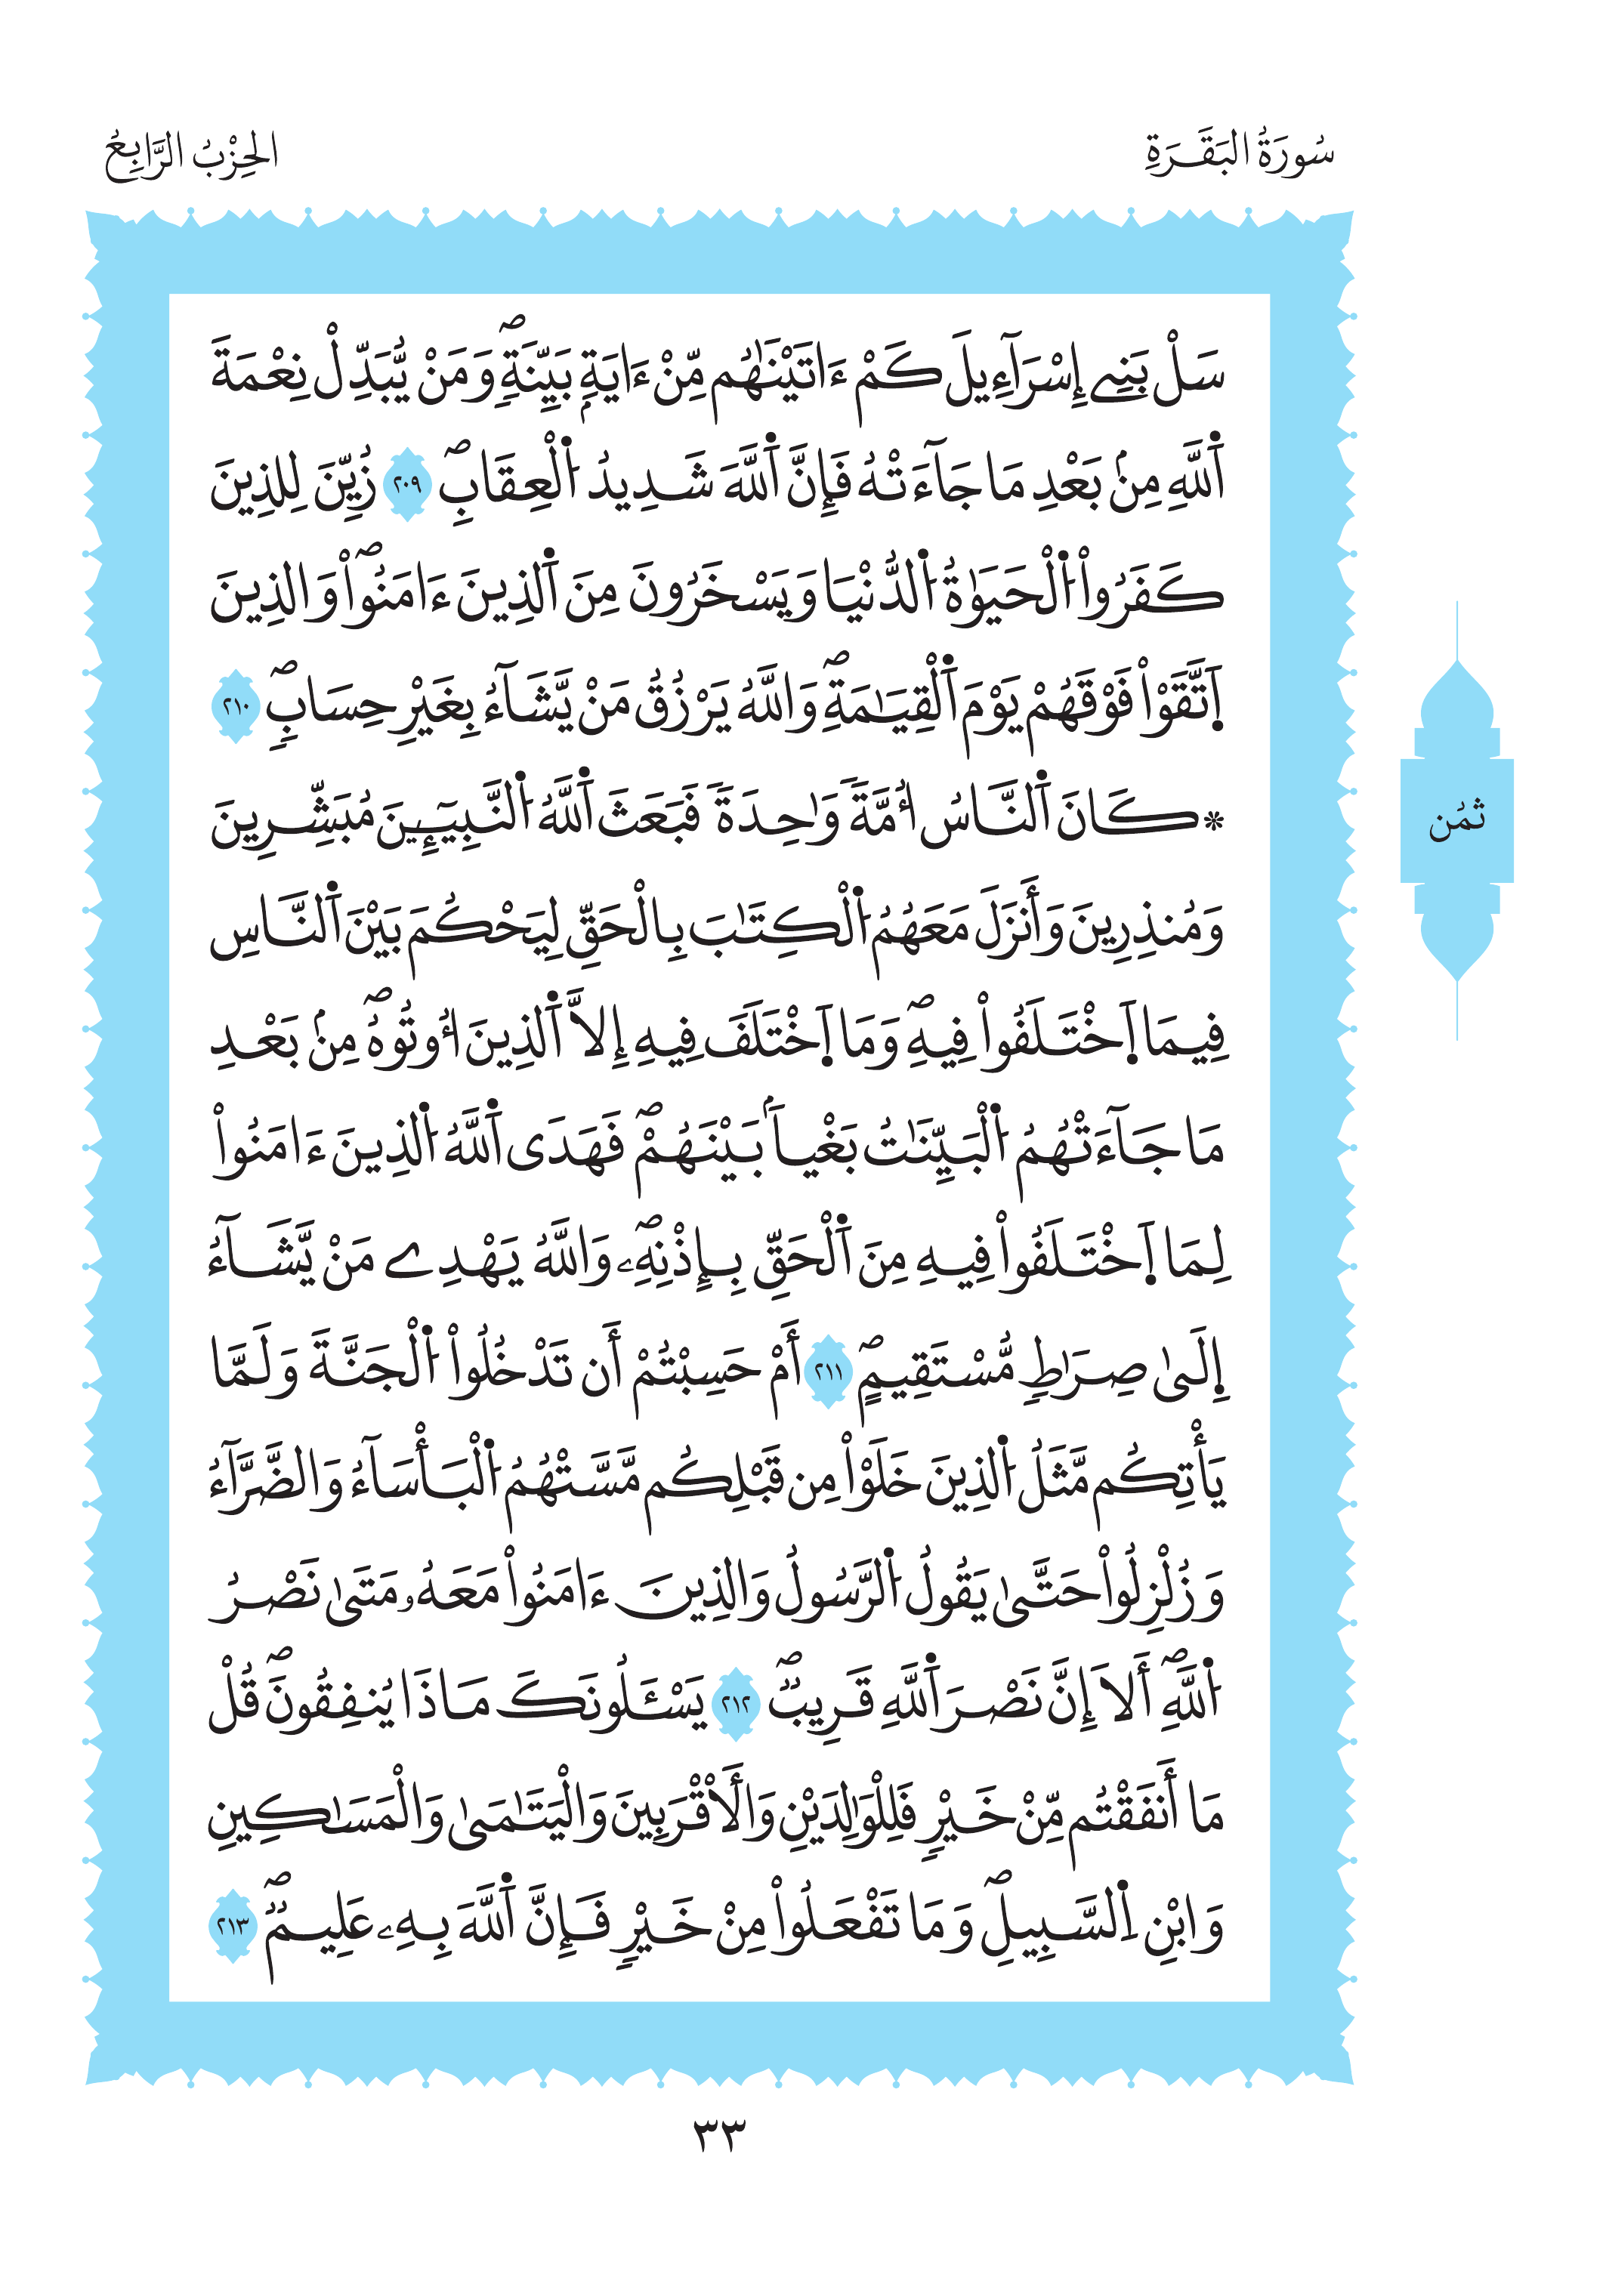 سُورَةُ البَقَرَةِ
الحِزْبُ الرَّابِعُ
سَلْ بَنِےٓ إِسْرَآءِيلَ كَمْ ءَاتَيْنَٰهُم مِّنْ ءَايَةِۢ بَيِّنَةٖۖ وَمَنْ يُّبَدِّلْ نِعْمَةَ
اَ۬للَّهِ مِنۢ بَعْدِ مَا جَآءَتْهُ فَإِنَّ اَ۬للَّهَ شَدِيدُ اُ۬لْعِقَابِۖ ٢٠٩ زُيِّنَ لِلذِينَ
كَفَرُواْ اُ۬لْحَيَوٰةُ اُ۬لدُّنْيَا وَيَسْخَرُونَ مِنَ اَ۬لذِينَ ءَامَنُواْۖ وَالذِينَ
اَ۪تَّقَوْاْ فَوْقَهُمْ يَوْمَ اَ۬لْقِيَٰمَةِۖ وَاللَّهُ يَرْزُقُ مَنْ يَّشَآءُ بِغَيْرِ حِسَابٖۖ ٢١٠
* كَانَ اَ۬لنَّاسُ أُمَّةٗ وَٰحِدَةٗ فَبَعَثَ اَ۬للَّهُ اُ۬لنَّبِيٓـِٕينَ مُبَشِّرِينَ
وَمُنذِرِينَ وَأَنزَلَ مَعَهُمُ اُ۬لْكِتَٰبَ بِالْحَقِّ لِيَحْكُمَ بَيْنَ اَ۬لنَّاسِ
فِيمَا اَ۪خْتَلَفُواْ فِيهِۖ وَمَا اَ۪خْتَلَفَ فِيهِ إِلَّا اَ۬لذِينَ أُوتُوهُۖ مِنۢ بَعْدِ
مَا جَآءَتْهُمُ اُ۬لْبَيِّنَٰتُ بَغْياَۢ بَيْنَهُمْۖ فَهَدَى اَ۬للَّهُ اُ۬لذِينَ ءَامَنُواْ
لِمَا اَ۪خْتَلَفُواْ فِيهِ مِنَ اَ۬لْحَقِّ بِإِذْنِهِۦۖ وَاللَّهُ يَهْدِے مَنْ يَّشَآءُ
اِ۪لَىٰ صِرَٰطٖ مُّسْتَقِيمٍۖ ٢١١ أَمْ حَسِبْتُمْ أَن تَدْخُلُواْ اُ۬لْجَنَّةَ وَلَمَّا
يَأْتِكُم مَّثَلُ اُ۬لذِينَ خَلَوْاْ مِن قَبْلِكُم مَّسَّتْهُمُ اُ۬لْبَأْسَآءُ وَالضَّرَّآءُ
وَزُلْزِلُواْ حَتَّىٰ يَقُولُ اُ۬لرَّسُولُ وَالذِينَ ءَامَنُواْ مَعَهُۥ مَتَىٰ نَصْرُ
اُ۬للَّهِۖ أَلَا إِنَّ نَصْرَ اَ۬للَّهِ قَرِيبٞۖ ٢١٢ يَسْـَٔلُونَكَ مَاذَا يُنفِقُونَۖ قُلْ
مَا أَنفَقْتُم مِّنْ خَيْرٖ فَلِلْوَٰلِدَيْنِ وَالَأْقْرَبِينَ وَالْيَتَٰمَىٰ وَالْمَسَٰكِينِ
وَابْنِ اِ۬لسَّبِيلِۖ وَمَا تَفْعَلُواْ مِنْ خَيْرٖ فَإِنَّ اَ۬للَّهَ بِهِۦ عَلِيمٞۖ ٢١٣
ثمُن
٣٣